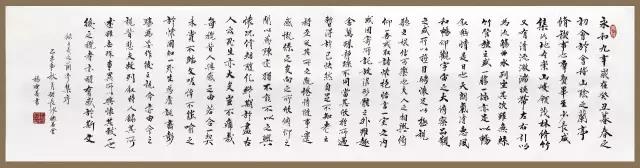 永和九年歲在癸丑暮春之
初會於會稽山陰之蘭亭
修禊事也群賢畢至少長咸
集此地有崇山峻領茂林修竹
又有清流激湍映帶左右引以
為流觴曲水列坐其次雖無絲
竹管弦之盛一觴一詠亦足以暢
敘幽情是日也天朗氣清惠風
和暢仰觀宇宙之大俯察品類
之盛所以遊目騁懷足以極視
聽之娛信可樂也夫人之相與俯
仰一世或取諸懷抱悟言一室之內
或因寄所託放浪形骸之外雖趣
舍萬殊靜躁不同當其欣於所遇
暫得於己快然自足不知老之
將至及其所之既惓情隨事遷
感慨係之矣向之所欣俛仰之
間以為陳迹猶不能不以之興
懷況修短隨化終期於盡古
人云死生亦大矣豈不痛哉
每覽昔人興感之由若合一契
未嘗不臨文嗟悼不能喻之
於懷固知一死生為虛誕齊彭
殤為妄作後之視今亦由今之
視昔悲夫故列敘時人錄其所
述雖世殊事異所以興懷其致一也
後之覽者亦將有感於斯文
錄王羲之蘭亭集序